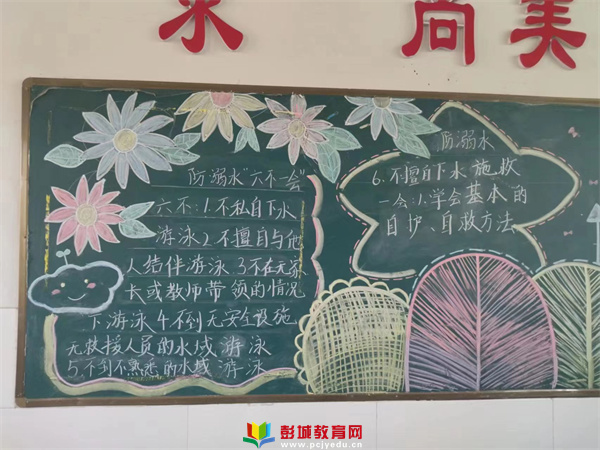 求 尚美
防溺水“六不一会”
六不:1.不私自下水
游泳2.不擅自与他
人结伴游泳.3不在无家
长或教师带领的情况
下游泳4.不到无安全设施
无救援人员的水域游泳
5.不到不熟悉的水域游泳
防溺水
6.不擅自下水施救
一会:1.学会基本的
自护、自救方法
彭城教育网
www.pcjyedu.cn